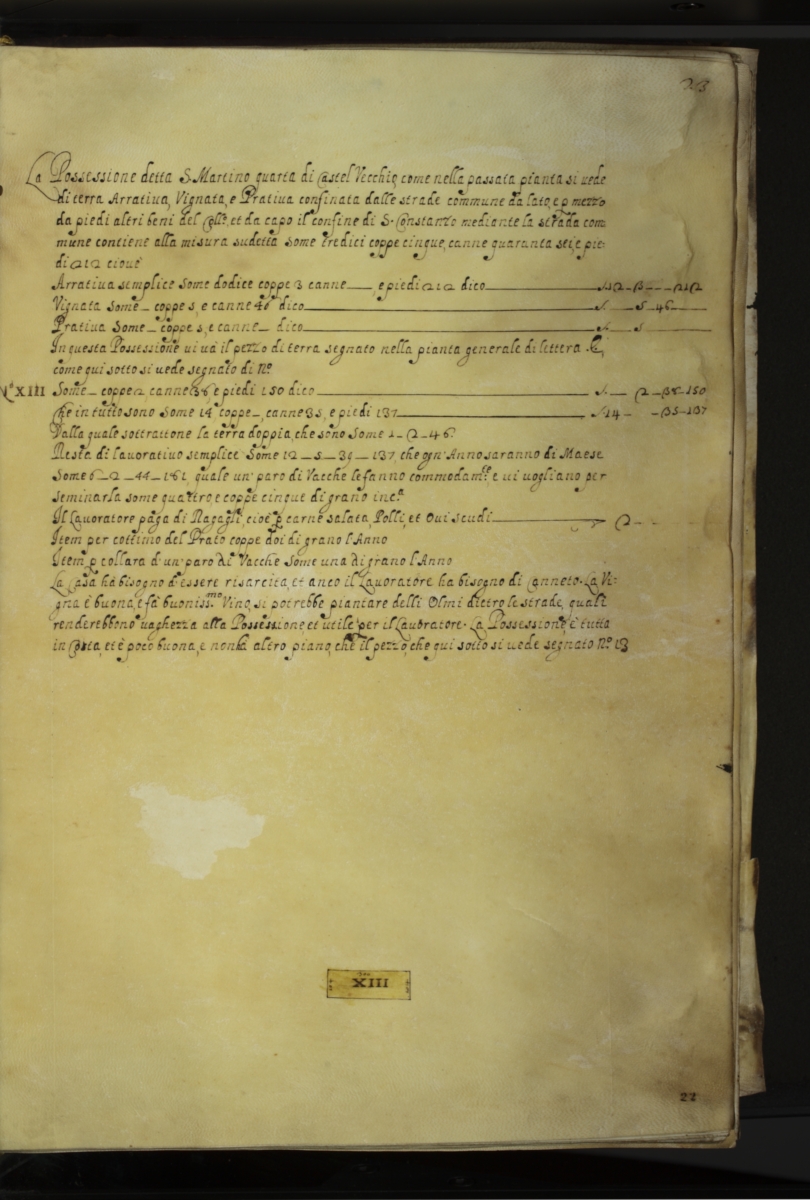 23
La Possessione detta S. Martino quarta di Castel Vecchio, come nella passata pianta si vede
di terra Arratiua, Vignata, e Pratiua confinata dalle strade commune da lato, e p mezzo
da piedi altri beni del Coll.º, et da capo il confine di S. Constanzo mediante la strada com
mune contiene alla misura sudetta some tredici coppe cinque, canne quaranta sei, e pie:
di 212 cioue
Arratiua semplice some dodice coppe 3 canne__, e piedi 212 dico 12_3__212
Vignata some_ coppe 5, e canne 46 dico 5_46
Pratiua some_ coppe 5, e canne_ dico 5
In questa Possessione ui uà il pezzo di terra segnato nella pianta generale di lettera
come qui sotto si uede segnato di Nº
Nº XIII Some_ coppe 2 canne 38 e piedi 150 dico 2_38_150
che in tutto sono some 14 coppe_, canne 35, e piedi 137 14__35_137
Dalla quale sottrattone la terra doppia, che sono some 1_2_46
Resta di lauoratiuo semplice some 12_5_39_137 che ogn'Anno saranno di Maese
Some 6_2_44_181, quale un paro di Vacche le fanno commodam.te e ui uogliano per
seminarla some quattro, e coppe cinque di grano inc.ª
Il Lauoratore paga di Regagli, cioè p carne salata, Polli, et Oui scudi 2
Item per cottimo del Prato coppe doi di grano l'Anno
Item p collara d'un paro di Vacche some una di grano l'Anno
La Casa hà bisogno d'essere risarcita, et anco il Lauoratore ha bisogno di Canneto. La Vi:
gna è buona, e fà buoniss.mo Vino, si potrebbe piantare delli Olmi dietro le strade, quali
renderebbono uaghezza alla Possessione, et utile per il Lauoratore. La Possessione è tutta
in Costa, et è poco buona, e non hà altro piano, che il pezzo che qui sotto si uede segnato Nº 13
XIII
22